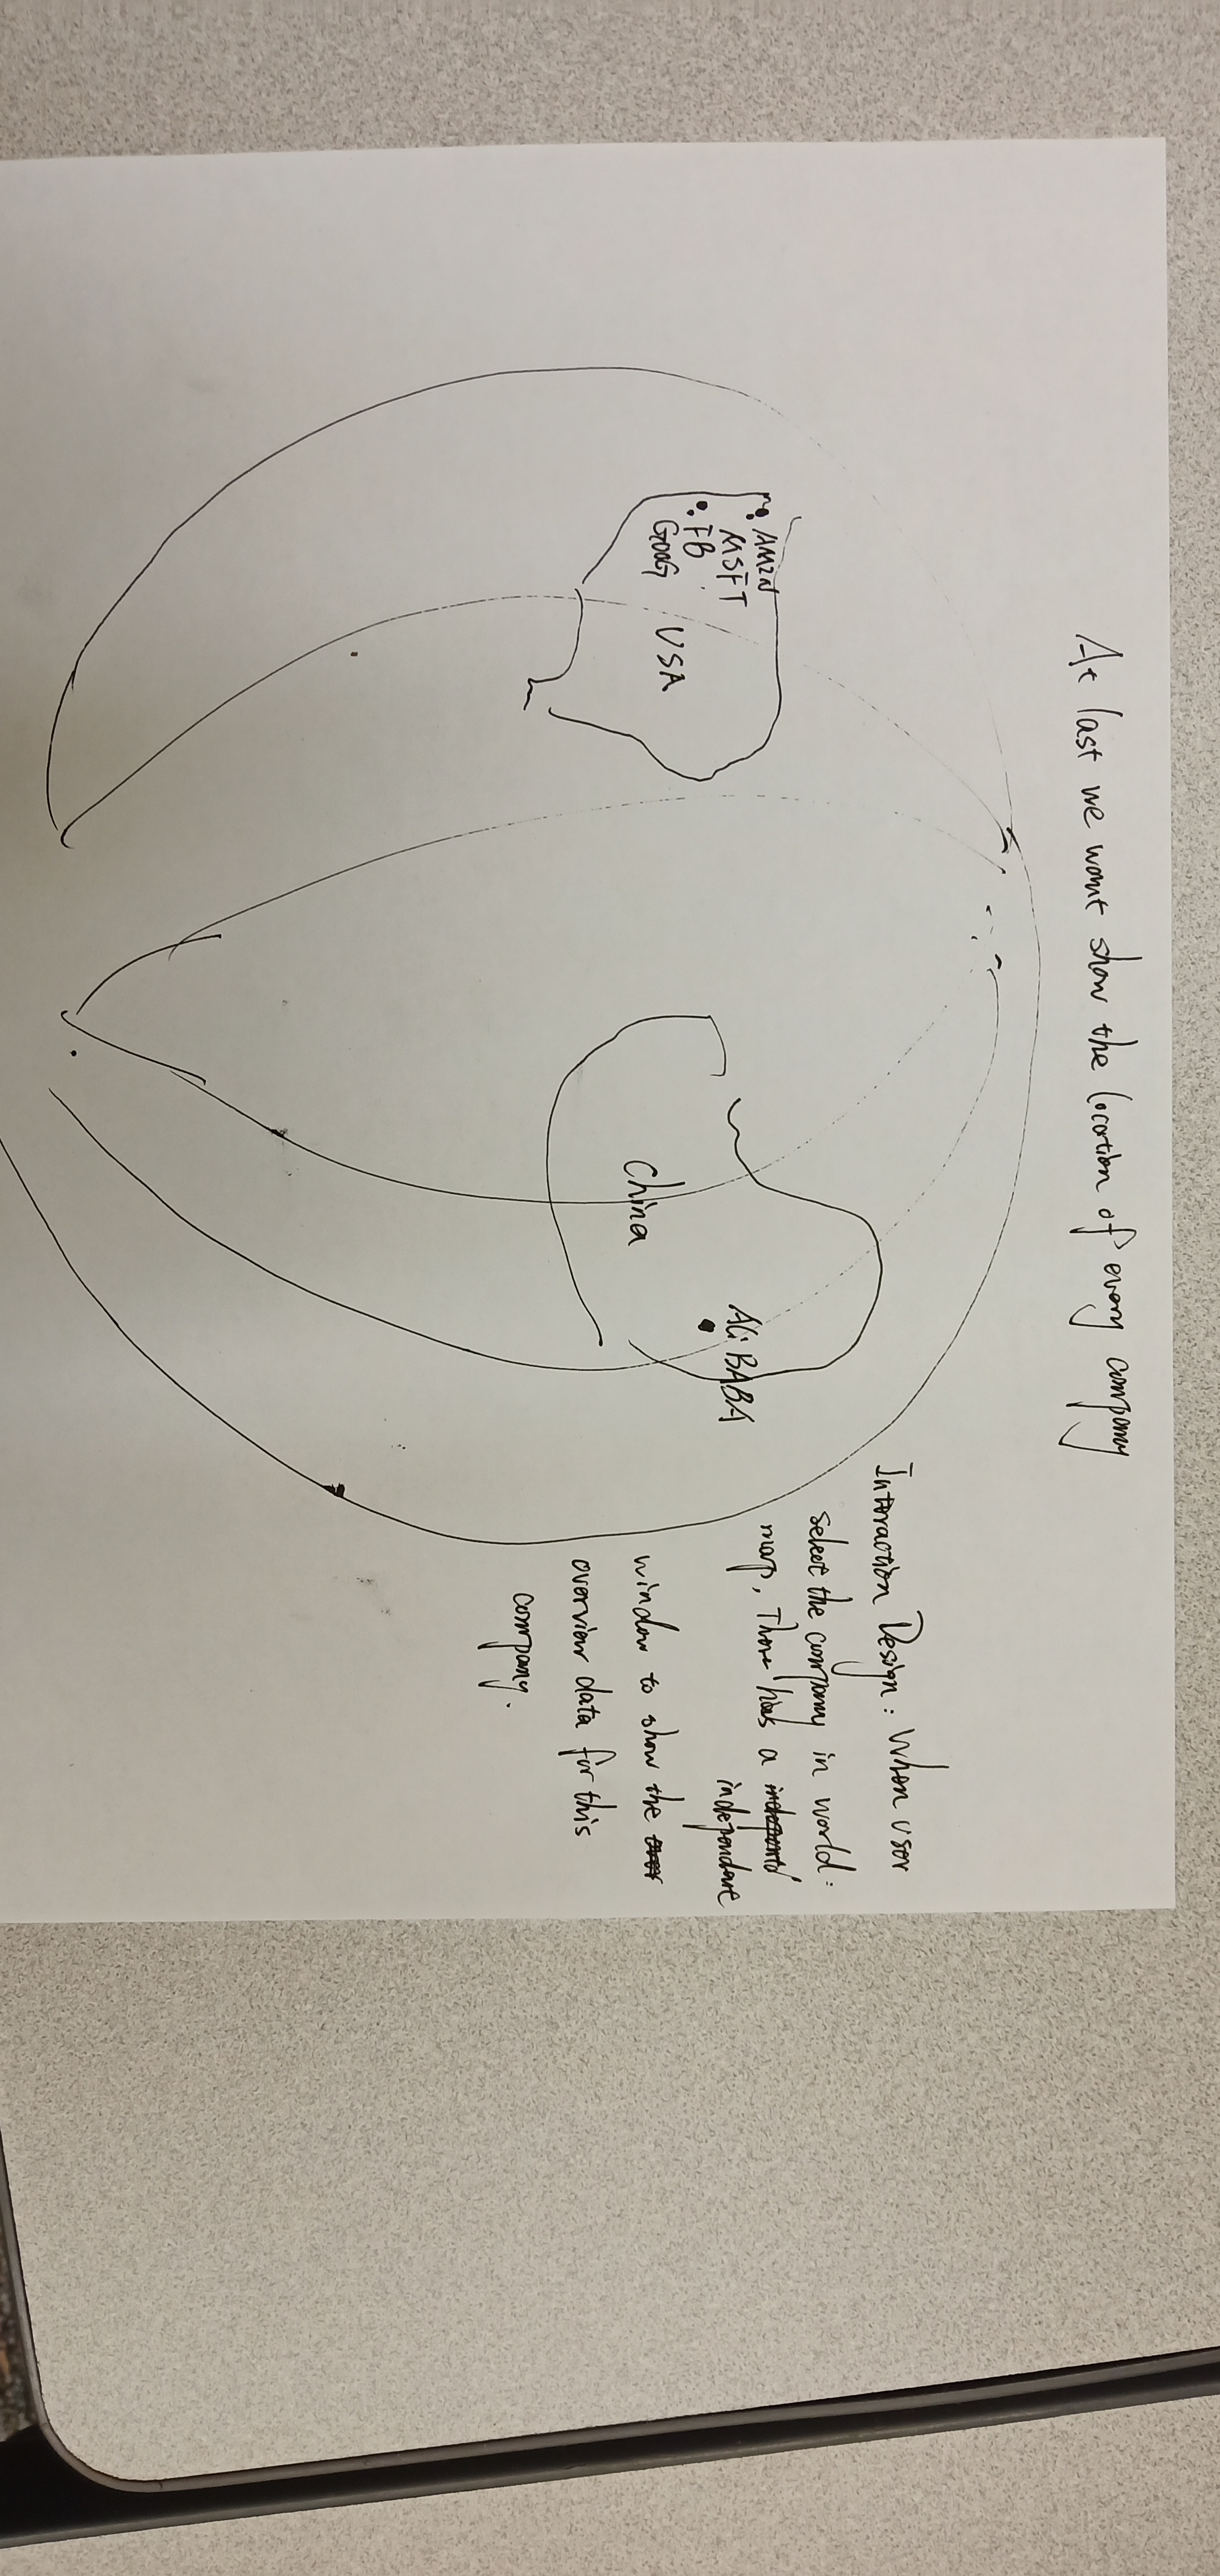 At last we want show the location of every company
AMZN
MSFT
FB
GOOG
USA
China
Ali BABA
Interaction Design: When user
select the company in world:
map, There has a
independent
window to show the
overview data for this
company.